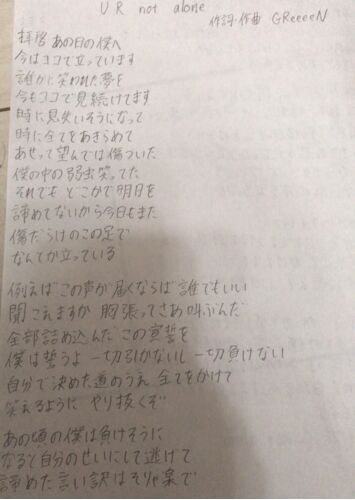 U R not alone
作詞・作曲 GReeeeN
拝啓 あの日の僕へ
今はココで立っています
誰かに笑われた夢を
今もココで見続けてます
時に見失いそうになって
時に全てをあきらめて
あせって望んでは傷ついた
僕の中の弱虫笑ってた
それでも どこかで明日を
諦めてないから今日もまた
傷だらけのこの足で
なんとか立っている
例えば この声が届くならば 誰でもいい
聞こえますか 胸張ってさあ 叫ぶんだ
全部詰め込んだ この宣誓を
僕は誓うよ 一切引かないし 一切負けない
自分で決めた道のうえ 全てをかけて
笑えるように やり抜くぞ
あの頃の僕は負けそうに
なると自分のせいにして逃げて
諦めた言い訳はそりゃ楽で